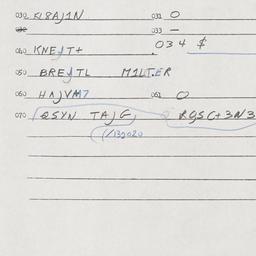 030 KI8AJ1N 031 O
032 033 —
040 KNEJT+ 034 $
050 BREJTL M1LT.ER
060 HAJVM7 061 O
070 QSYN TAJG RQSC+3N3
(/132020